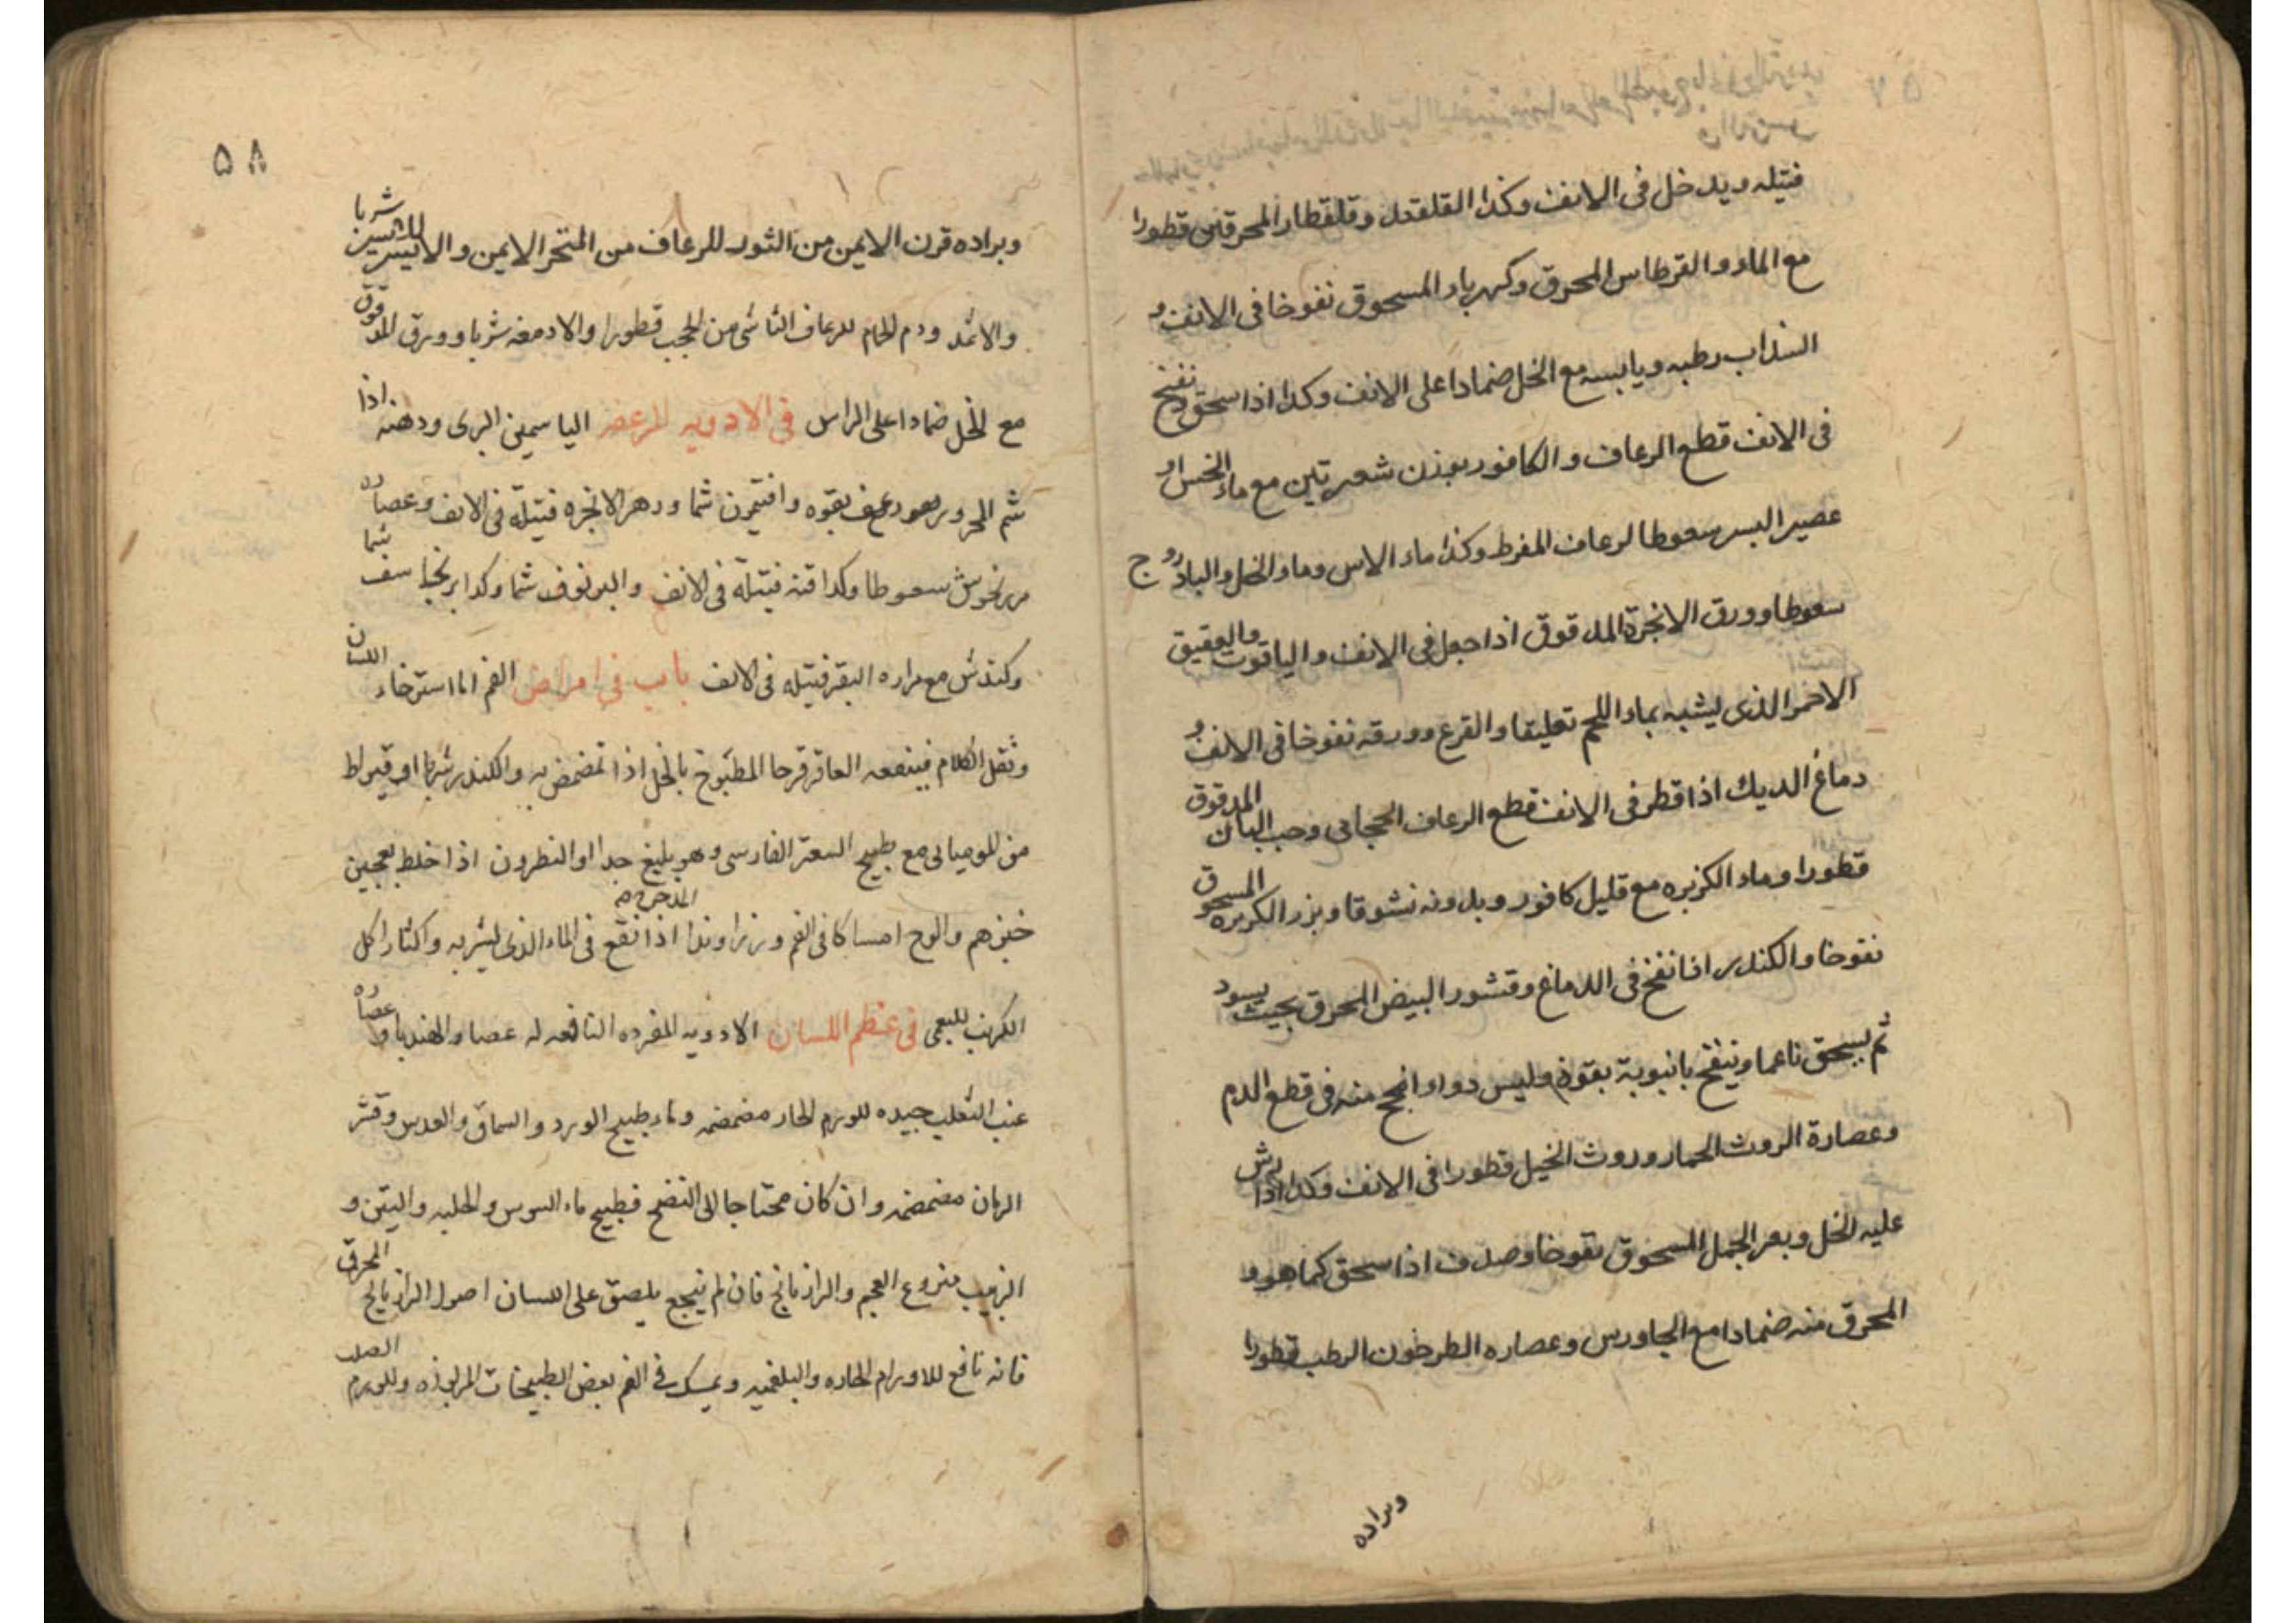 فتيله ويدخل فى الانف وكذا القلقديل وقلقطار المحرقين قطورا
مع الماء والقرطاس المحرق وكهرباء المسحوق نفوخا فى الانف و
السذاب رطبه ويابسه مع الخل ضمادا على الانف وكذا اذا سحق ونفخ
فى الانف قطع الرعاف والكافور بوزن شعيرتين مع ماء الخس او
عصير البسر سعوطا لرعاف المفرط وكذا ماء الاس وماء الخل والباذروج
سعوطا وورق الانجرة المدقوق اذا جعل فى الانف والياقوت والعقيق
الاحمر الذى يشبه بماء اللحم تعليقا والقرع وورقه نفوخا فى الانف و
دماغ الديك اذا قطر فى الانف قطع الرعاف الحجابى وحب البان المدقوق
قطورا وماء الكزبره مع قليل كافور وبدونه نشوقا وبزر الكزبره المسحوق
نفوخا والكندر اذا نفخ فى الدماغ وقشور البيض المحرق بحيث يسود
ثم يسحق ناعما وينفخ بانبوبة بقوة وليس دواء انجح منه فى قطع الدم
وعصارة الروث الحمار وروث الخيل قطورا فى الانف وكذا اذا رش
عليه الخل وبعر الجمل المسحوق نفوخا وصدف اذا سحق كما هو و
المحرق منه ضمادا مع الجاورس وعصاره الطرخون الرطب قطورا
وبراده
۵۸
وبراده قرن الايمن من الثور للرعاف من المنخر الايمن والايسر للايسر شربا
والاثمد ودم الحمام للرعاف الناشى من الحجب قطورا والادمغه شربا وورق المدقوق
مع الخل ضمادا على الراس فى الادويه المرعفه الياسمين البرى ودهنه اذا
شم المحرور يرعف بقوه وافتيمون شما وزهر الانجره فتيلة فى الانف وعصاره
مرزنجوش سعوطا وكذا قنه فتيلة فى الانف والبرنوف شما وكذا برنجاسف شما
وكندش مع مراره البقر فتيله فى الانف باب فى امراض الفم اما استرخاء اللسان
وثقل الكلام فينفعه العاقرقرحا المطبوخ بالخل اذا تمضمض به والكندر شربا او قيراط
من الموميائى مع طبيخ السعتر الفارسى وهو بليغ جدا او النطرون اذا خلط بعجين
خبزهم والوج امساكا فى الفم وزراوند المدحرج اذا نقع فى الماء الذى ليشربه واكثار اكل
الكرنب للبعى فى عظم اللسان الادويه المفرده النافعه له عصا والهندبا وعصاره
عنب الثعلب جيده للورم الحار مضمضه وماء طبيخ الورد والسماق والعدس وقشر
الرمان مضمضه وان كان محتاجا الى النضج فطبيخ ماء السوس والحلبه والتين و
الزبيب منزوع العجم والرازيانج فان لم ينجع يلصق على اللسان اصول الرازيانج المحرق
فانه نافع للاورام الحاره والبلغميه ويمسك فى الفم بعض الطبيخات المرليذه وللورم الصلب